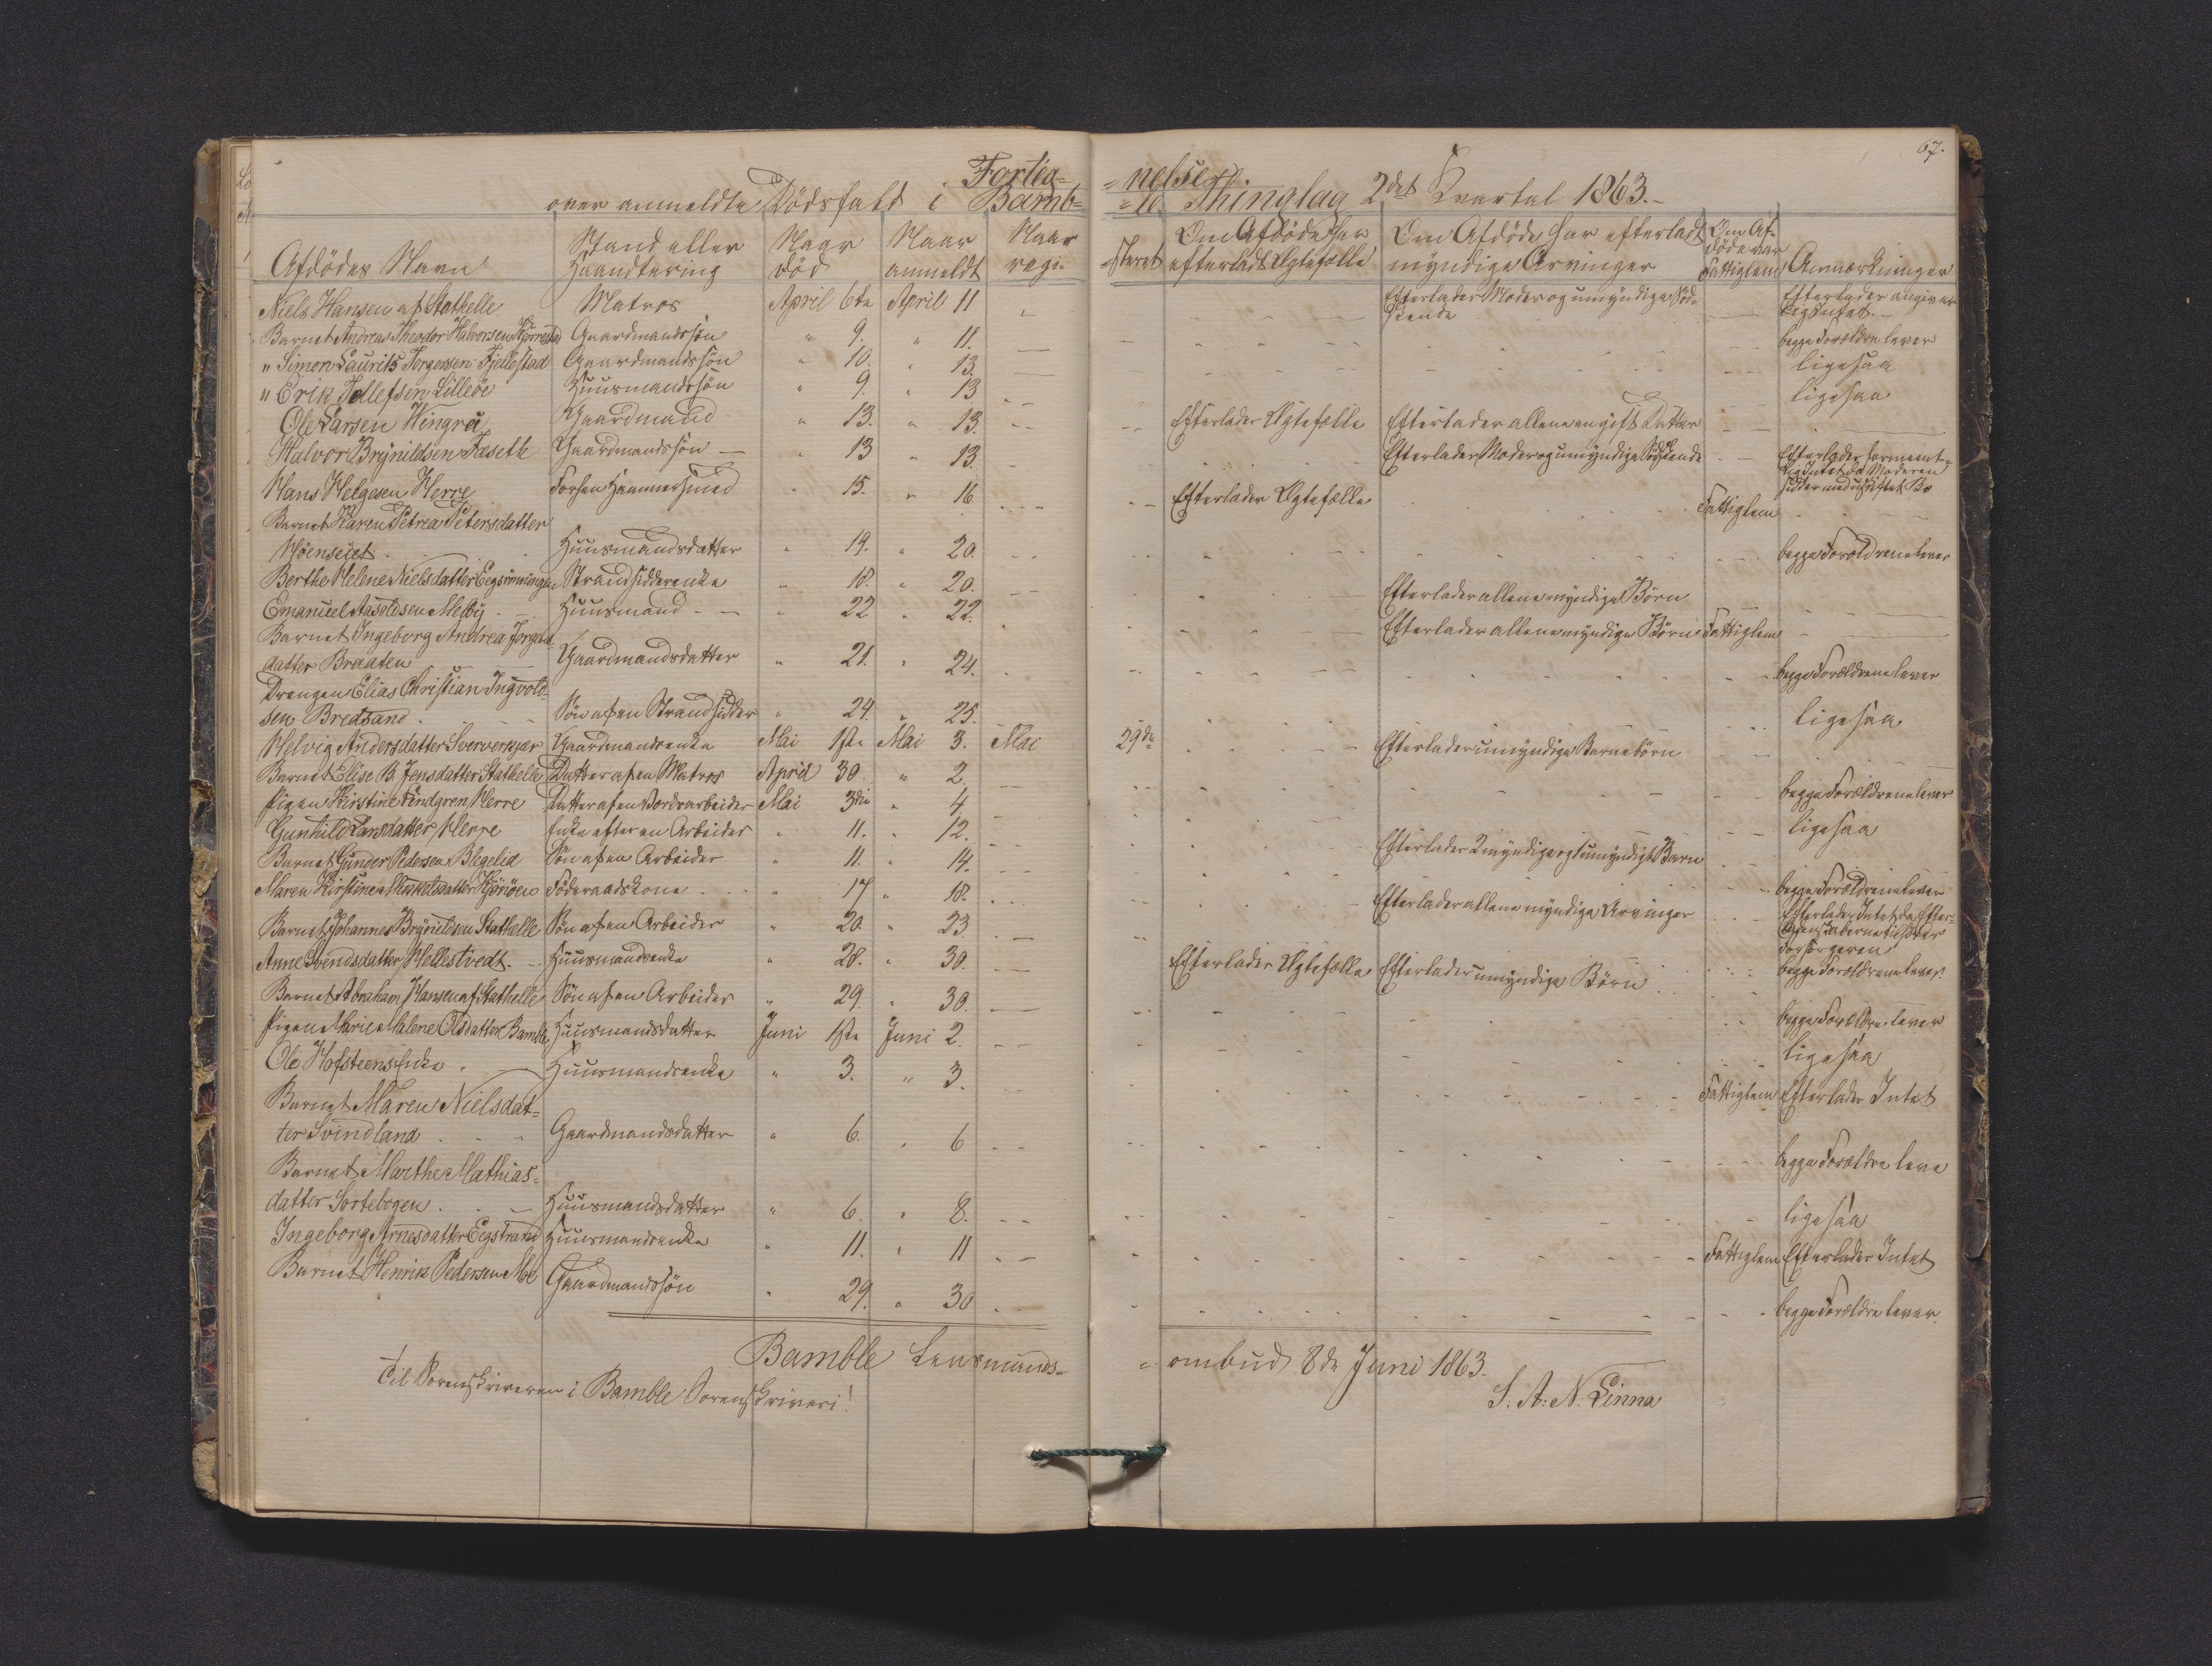 67.
Forteg= =nelse
over anmeldte Dödsfald i Bamb= =le Thinglag 2det Kvartal 1863.-
Afdödes Navn Stand eller Haandtering Naar död Naar anmeldt Naar regi= =steret Om Afdöde har efterladt Ægtefælle Om Afdöde har efterladt myndige Arvinger Om Af= döde var Fattiglem Anmærkninger
Niels Hansen af Stathelle Matros April 6te April 11 Efterlader Moder og umyndige Söd= skende Efterlader angive= lig Intet.-
Barnet Andreas Theodor Halvorsen Gaardmandssön " 9. " 11. begge Forældre lever
" Simon Laurits Torgersen Fjellestad Gaardmandssön " 10. " 13. ligesaa
" Erik Tellefsen Lilleöe Huusmandssön " 9. " 13 ligesaa
Ole Larsen Wingra Gaardmand " 13. " 13. Efterlader Ægtefælle Efterlader allene en gift Datter
Halvor Brynildsen Faseth Gaardmandssön " 13 " 13. Efterlader Moder og umyndige Södskende Efterlader formeent= lig Intet da Moderen sidder med uskiftet Bo
Hans Helgesen Herre Forhen Hammersmed " 15. " 16 Efterlader Ægtefælle Fattiglem
Barnet Karen Petrea Petersdatter
Höenseiet Huusmandsdatter " 19. " 20. begge Forældrene lever
Berthe Helene Nielsdatter Strandsidderenke " 18. " 20. Efterlader allene myndige Börn
Emanuel Aasoldsen Melby Huusmand " 22 " 22. Efterlader allene myndige Börn Fattiglem
Barnet Ingeborg Andrea Jörgens=
datter Braaten Gaardmandsdatter " 21. " 24. begge Forældrene lever
Drengen Elias Christian Ingvold=
sen Bredsand Sön af en Strandsidder " 24. " 25. ligesaa
Helvig Andersdatter Sververkjær Gaardmandsenke Mai 1ste Mai 3. Mai 29de Efterlader umyndige Barnebörn
Barnet Elise B. Jensdatter Stathelle Datter af en Matros April 30. " 2. begge Forældrene lever
Pigen Kirstine Lindgren Herre Datter af en Bordarbeider Mai 3die " 4 ligesaa
Gunhild Larsdatter Herre Enke efter en Arbeider " 11. " 12. Efterlader 2 myndige og 1 umyndigt Barn
Barnet Gunder Pedersen Blegelid Sön af en Arbeider " 11. " 14. begge Forældrene lever
Maren Kirstine Kjönöen Föderaadskone " 17 " 18. Efterlader allene myndige Arvinger Efterlader Intet da Efter= ladenskaberne tilhörer Forsörgeren
Barnet Johannes Brynildsen Stathelle Sön af en Arbeider " 20. " 23 begge Forældrene lever.
Anne Svendsdatter Hellestvedt Huusmandsenke " 28. " 30. Efterlader Ægtefælle Efterlader umyndige Börn
Barnet Abraham Hansen af Stathelle Sön af en Arbeider " 29. " 30. begge Forældre lever
Pigen Marie Malene Olsdatter Bamble Huusmandsdatter Juni 1ste Juni 2. ligesaa
Ole Hofsteens Enke Huusmandsenke " 3. " 3. Fattiglem Efterlader Intet
Barnet Maren Nielsdat=
ter Svindland Gaardmandsdatter " 6. " 6 begge Forældre leve
Barnet Marthe Mathias=
datter Sortebogen Huusmandsdatter " 6. " 8. ligesaa
Ingeborg Arnesdatter Eegstrand Huusmandsenke " 11. " 11 Fattiglem Efterlader Intet
Barnet Henrik Pedersen Moe Gaardmandssön " 29. " 30 begge Forældre lever.
Bamble Lensmands= =ombud 8de Juni 1863.
Til Sorenskriveren i Bamble Sorenskriveri!
S. A. N. Linna